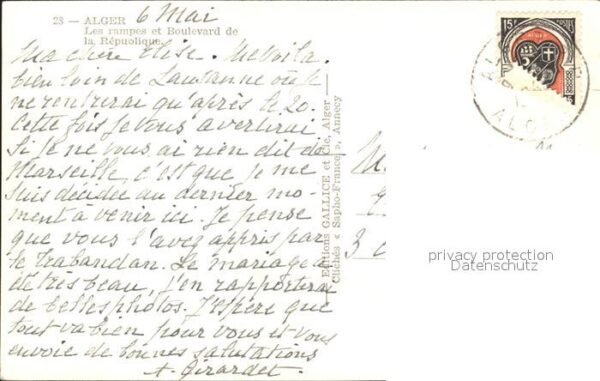 28 — ALGER
6 Mai
Les rampes et Boulevard de
la République
Ma chère Elise. Me voilà
bien loin de Lausanne où je
ne rentrerai qu'après le 20.
Cette fois je vous avertirai
Si je ne vous ai rien dit de
Marseille, c'est que je me
suis décidée au dernier mo-
ment à venir ici. Je pense
que vous l'avez appris par
le Trabandan. Le mariage a
été très beau, j'en rapporterai
de belles photos. J'espère que
tout va bien pour vous et vous
envoie de bonnes salutations
A. Girardet
Editions GALLICE et Cie, Alger
Clichés « Sapho-France », Annecy
15F
POSTES
ALGER
M.
3
privacy protection
Datenschutz